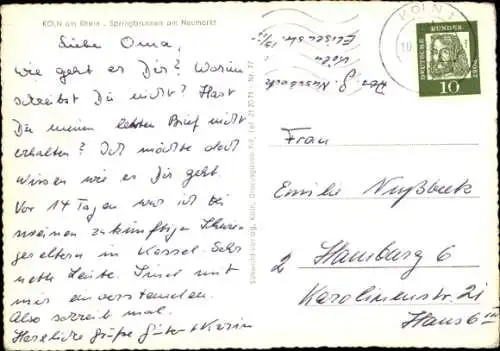 KÖLN am Rhein - Springbrunnen am Neumarkt
Liebe Oma,
wie geht es Dir? Warum
schreibst Du nicht? Hast
Du meinen letzten Brief nicht
erhalten? Ich möchte doch
wissen wie es Dir geht.
Vor 14 Tagen war ich bei
meinen zukünftigen Schwie-
gereltern in Kassel. Sehr
nette Leute. Sind mit
mir einverstanden.
Also schreib mal.
Herzliche Grüße Günter + Karin
Abs. G. Nussbeck
Köln
KÖLN
DEUTSCHE
BUNDES
POST
10
Frau
Emilie Nußbeck
2 Hamburg 6
Karolinenstr. 21
Haus 6 III